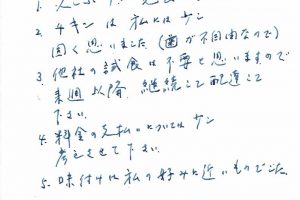 2. チキンは私には少し
固く思いました(歯が不自由なので)
3. 他社の試食は不要と思いますので
来週以降、継続して配達して
下さい。
4. 料金の支払いについては少し
考えさせて下さい。
5. 味付けは私の好みに近いものでした。